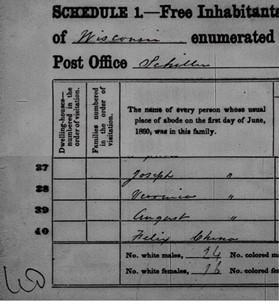 SCHEDULE 1.—Free Inhabitants
of Wisconsin enumerated
Post Office Schiller
Dwelling-houses—numbered in the order of visitation.
Families numbered in the order of visitation.
The name of every person whose usual place of abode on the first day of June, 1860, was in this family.
37
Joseph "
38
Veronica "
39
August "
40
Felix
No. white males, 24 No. colored m
No. white females, 16 No. colored fe